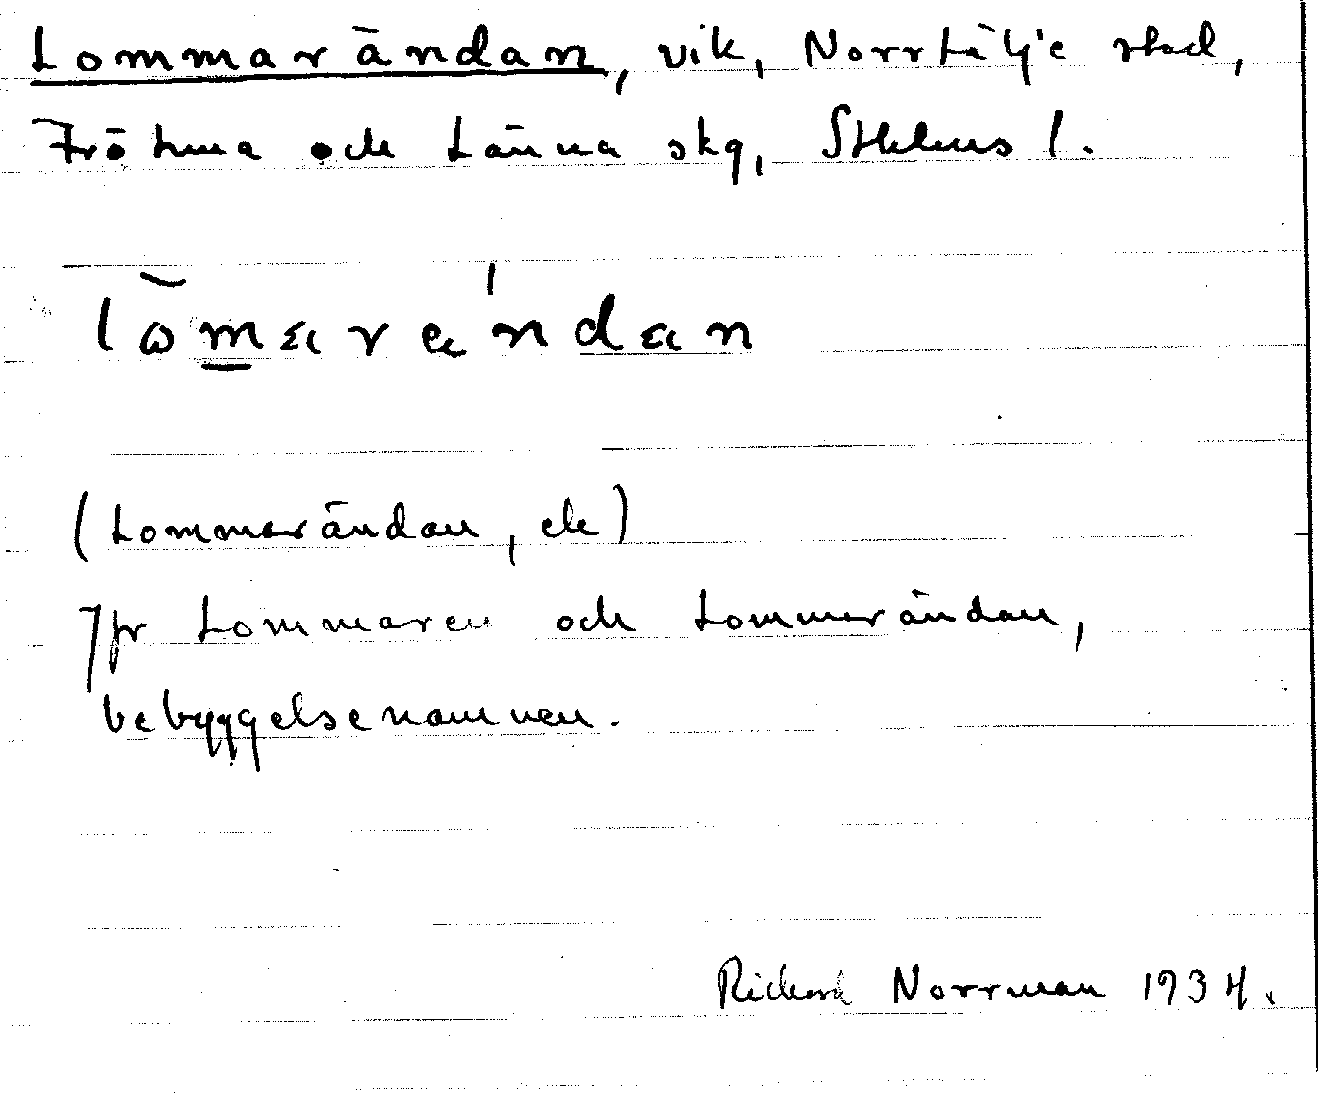 Lommarändan, vik, Norrtälje stad,
Frötuna och Länna skg, Sthlms l.
(Lommarändan, ek)
Jfr Lommaren och Lommarändan,
bebyggelsenamnen.
Richard Norrman 1934.